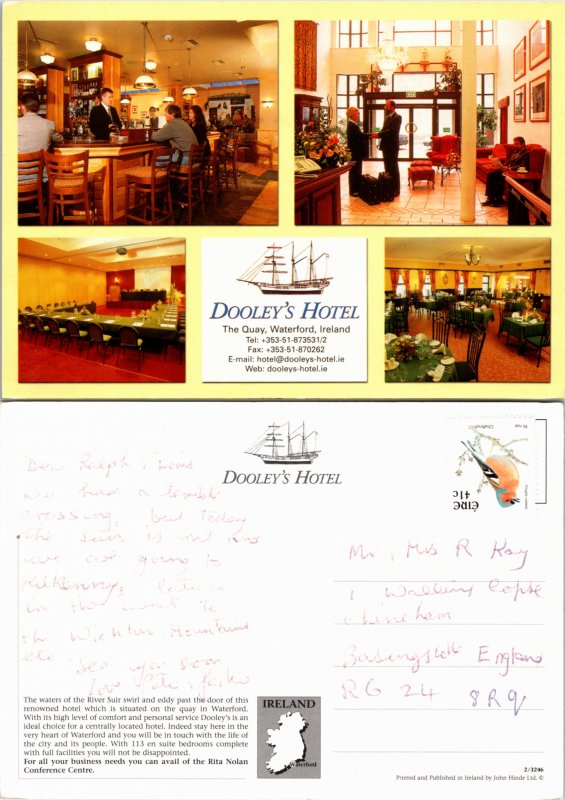 DOOLEY'S HOTEL
The Quay, Waterford, Ireland
Tel: +353-51-873531/2
Fax: +353-51-870262
E-mail: hotel@dooleys-hotel.ie
Web: dooleys-hotel.ie
DOOLEY'S HOTEL
ÉIRE
41c
Dear Ralph
We had a terrible
crossing, but today
the sun is out and
we are going to
Kilkenny, later on
in the week to
the Wicklow Mountains
etc
See you soon
Love
Mr, Mrs R Kay
1
Chineham
Basingstoke England
RG 24 8R9
The waters of the River Suir swirl and eddy past the door of this
renowned hotel which is situated on the quay in Waterford.
With its high level of comfort and personal service Dooley's is an
ideal choice for a centrally located hotel. Indeed stay here in the
very heart of Waterford and you will be in touch with the life of
the city and its people. With 113 en suite bedrooms complete
with full facilities you will not be disappointed.
For all your business needs you can avail of the Rita Nolan
Conference Centre.
IRELAND
Waterford
2/3246
Printed and Published in Ireland by John Hinde Ltd. ©